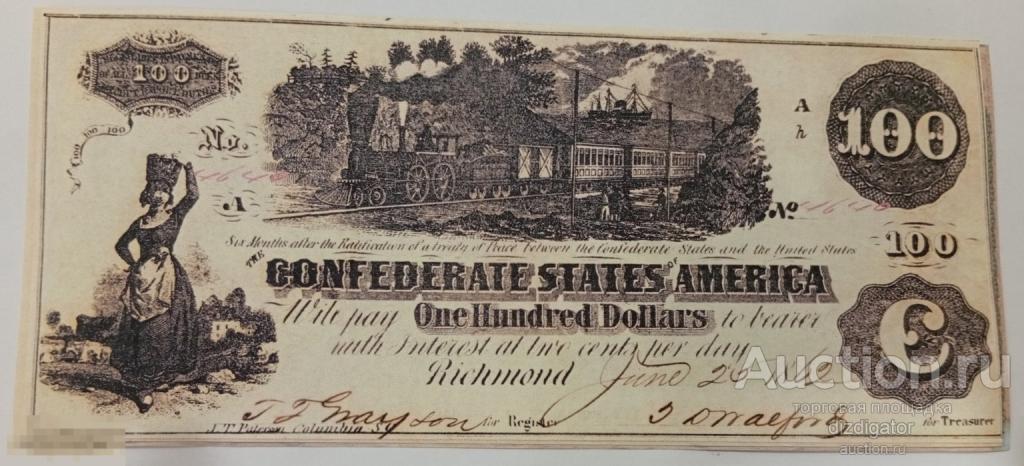 100
100 · 100 · 100
No.
A
A
h
100
No
100
Six Months after the Ratification of a treaty of Peace between the Confederate States and the United States
THE CONFEDERATE STATES OF AMERICA
Will pay One Hundred Dollars to bearer
with Interest at two cents per day
Richmond June
C
for Register
for Treasurer
J. T. Paterson Columbia S.C.
Auction.ru
торговая площадка
dizdigator
auction.ru